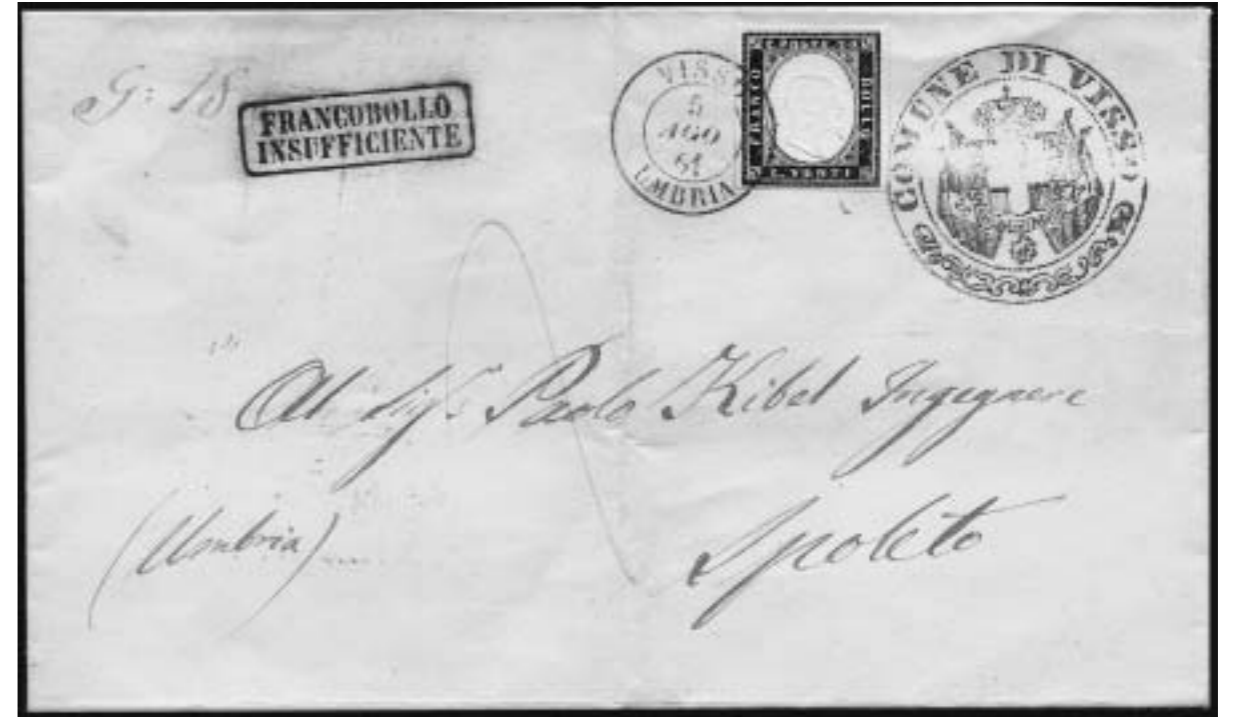 G: 18
FRANCOBOLLO
INSUFFICIENTE
VISSO
5
AGO
61
UMBRIA
C. POSTE
FRANCO
BOLLO
C. VENTI
COMUNE DI VISSO
Al Sigr Paolo Kibel Ingegnere
(Umbria)
Spoleto